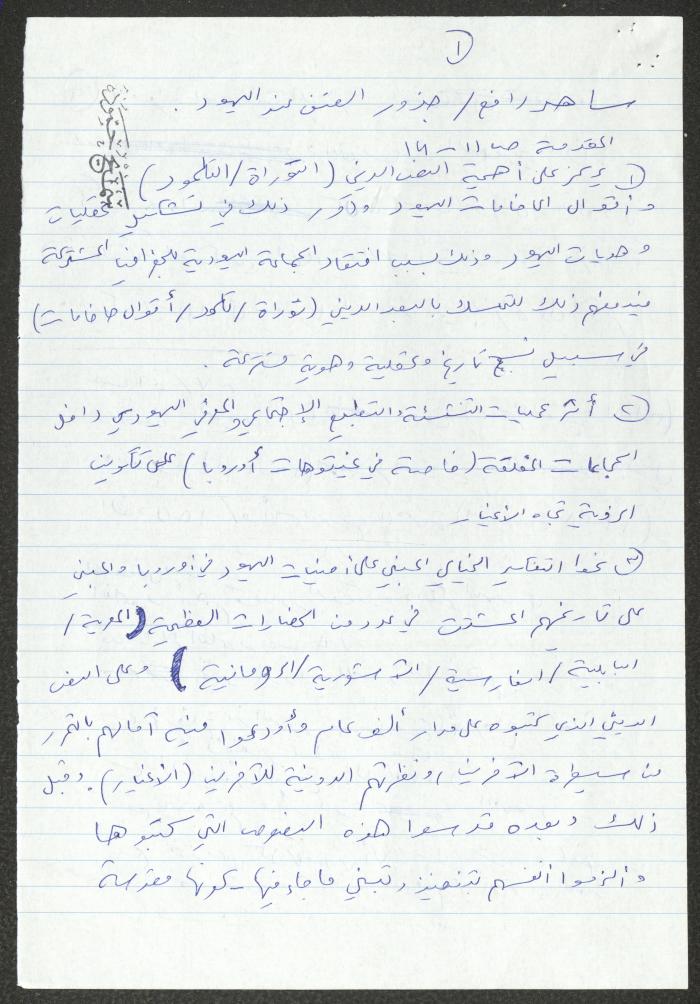 ١
ساهر رافع / جذور العنف عند اليهود .
المقدمة ص ١١ - ١٦
١ يركز على أهمية النص الديني (التوراة / التلمود)
و أقوال الحاخامات اليهود ودور ذلك في تشكيل عقليات
و هويات اليهود وذلك بسبب افتقاد الجماعة اليهودية للجغرافيا المشتركة
فيدفعهم ذلك للتمسك بالبعد الديني (توراة / تلمود / أقوال حاخامات)
في سبيل نسج تاريخ وعقلية وهوية مشتركة .
٢ أثر عمليات التنشئة والتطبيع الاجتماعي والمعرفي اليهودي داخل
الجماعات المغلقة (خاصة في غيتوهات أوروبا) على تكوين
الرؤية تجاه الأغيار
٣ نحوا التفاسير الخيالي المبني على أمنيات اليهود في أوروبا والمبني
على تاريخهم المشتت في عدد من الحضارات العظيمة (المصرية /
البابلية / الفارسية / الآشورية / الرومانية) وعلى النص
الديني الذي كتبوه على مدار ألف عام وأودعوا فيه آمالهم بالتحرر
من سيطرة الآخرين، ونظرتهم الدونية للآخرين (الأغيار). وقبل
ذلك وبعده قدسوا هذه النصوص التي كتبوها
وألزموا أنفسهم بتنفيذ وتبني ما جاء فيها - كونها مقدسة